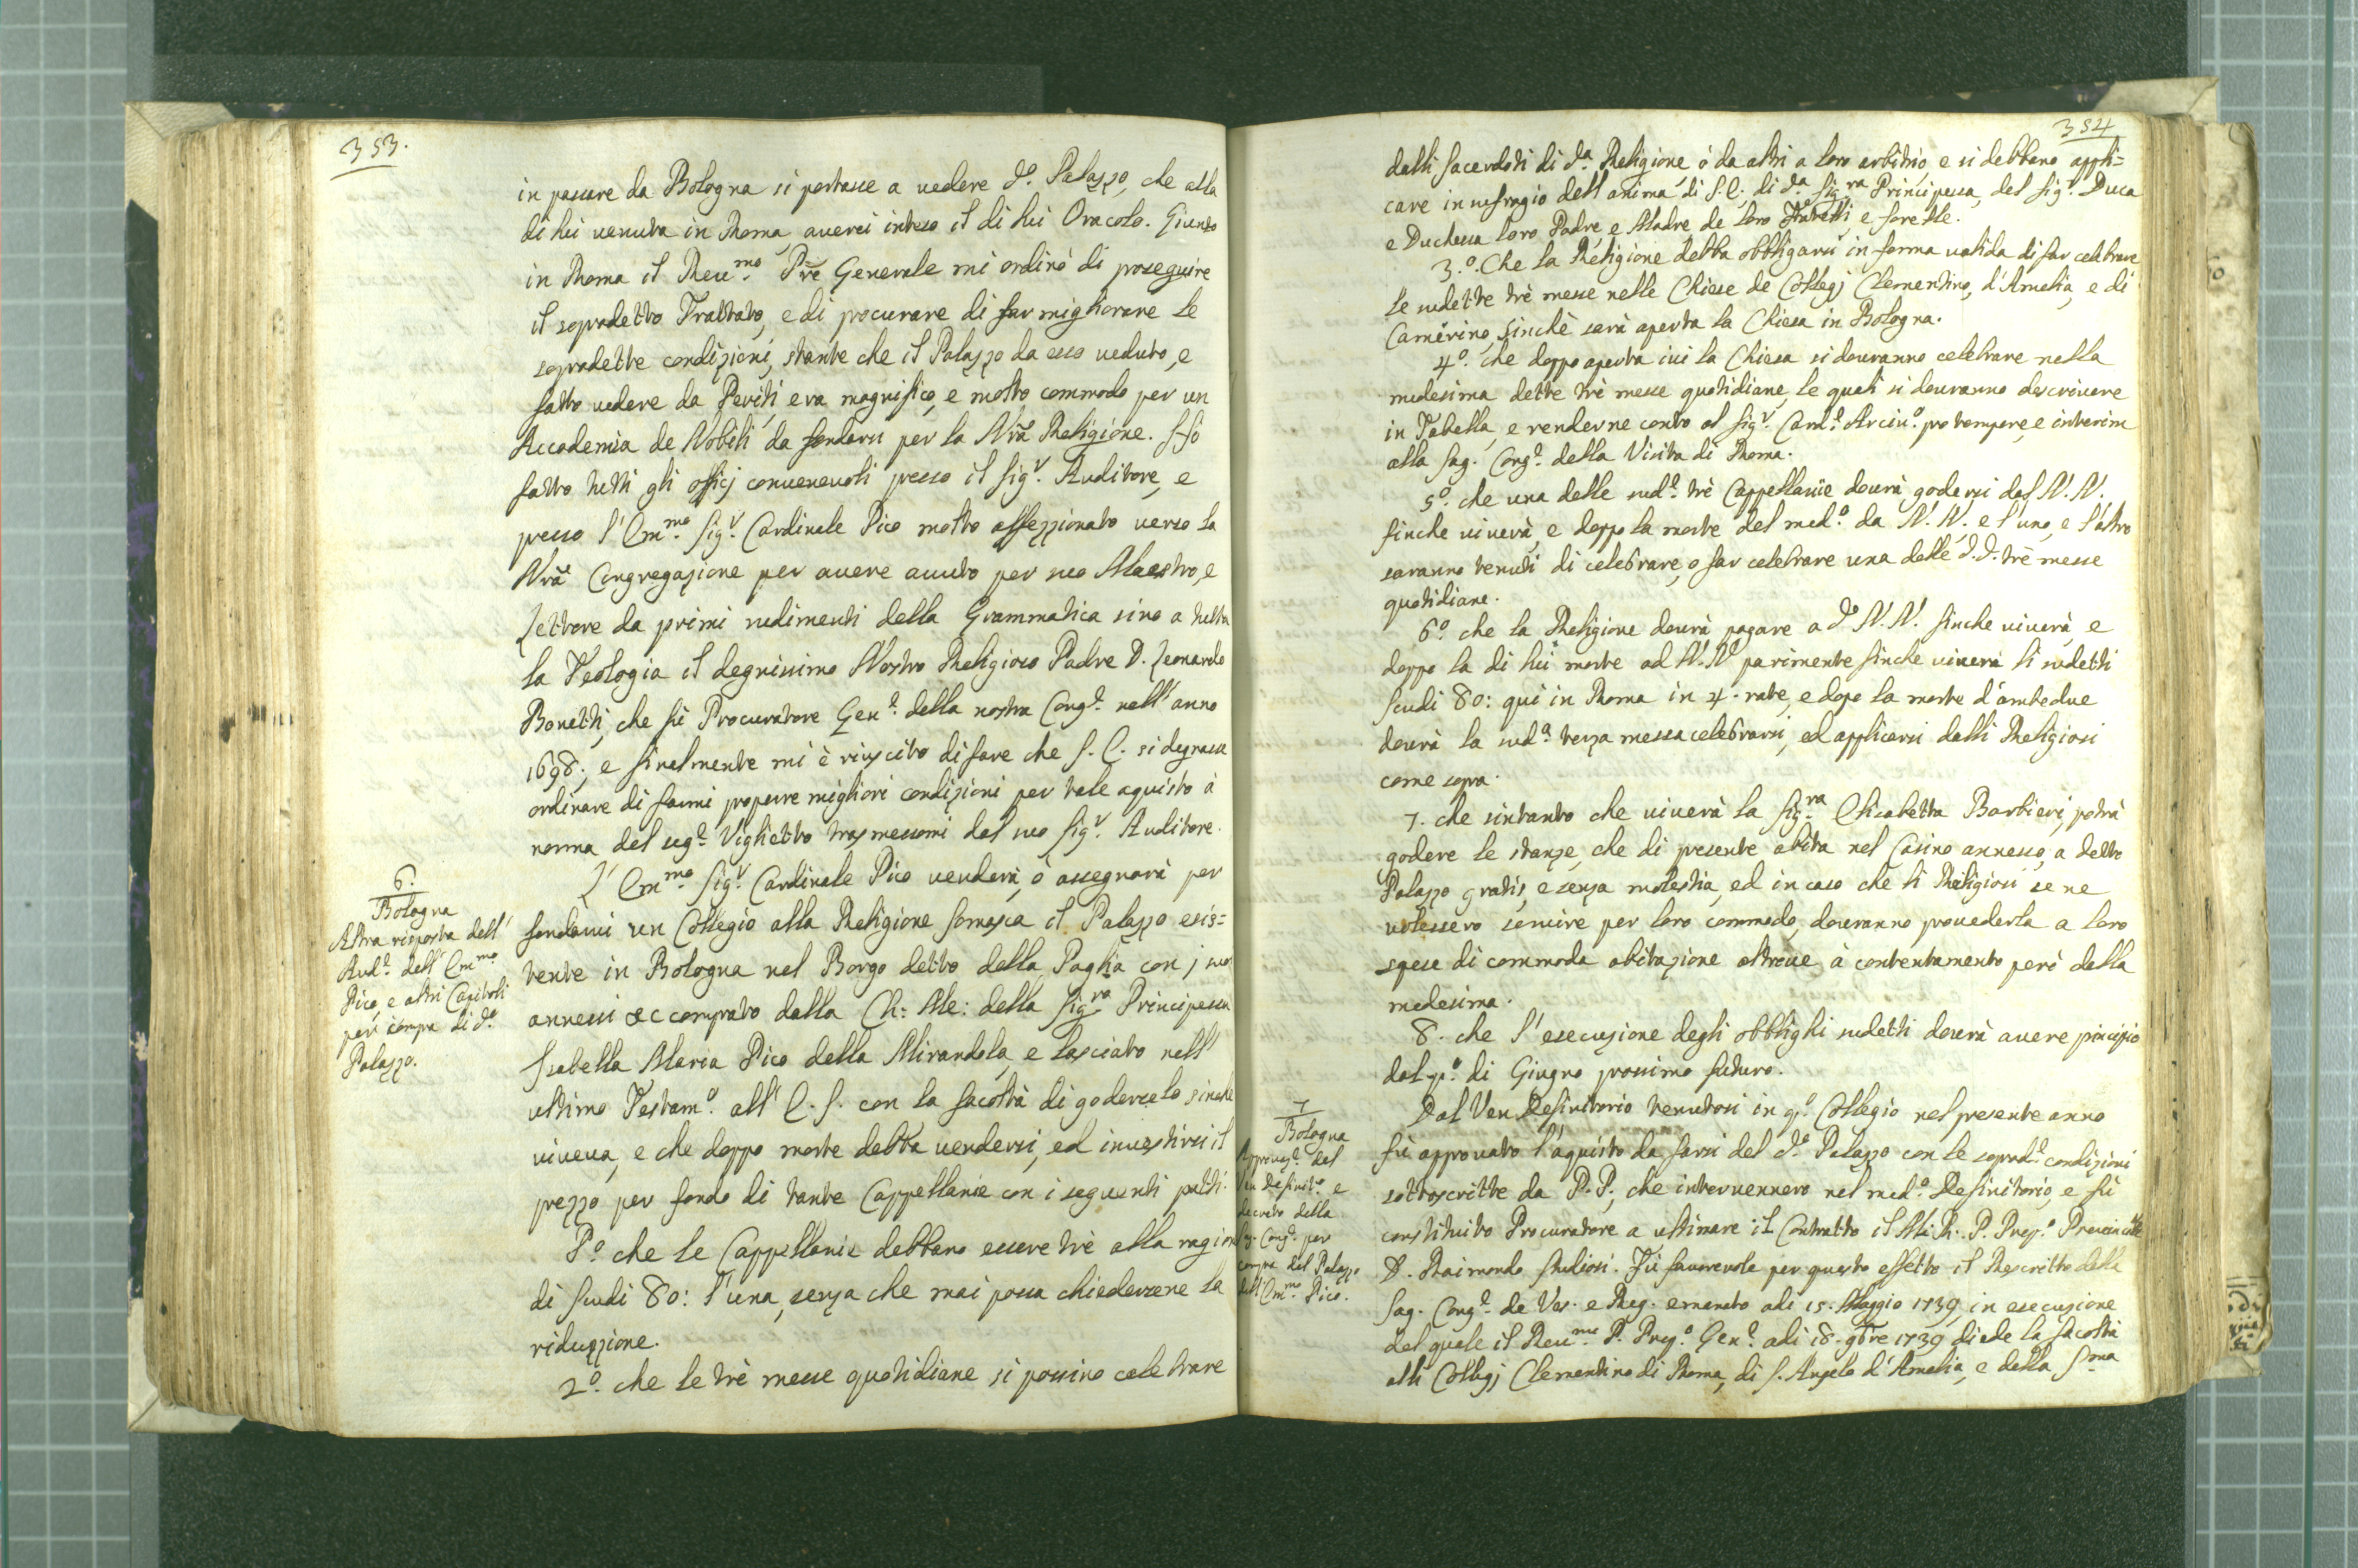 353.
in passare da Bologna si portasse a vedere d.º Palazzo, che alla
di lui venuta in Roma averei inteso il di lui Oracolo. Giunto
in Roma il Reu.mo Prē Generale mi ordinò di proseguire
il sopradetto Trattato, e di procurare di far migliorare le
sopradette condizioni, stante che il Palazzo da esso veduto, e
fatto vedere da Periti era magnifico, e molto commodo per un
Accademia de Nobili da fondarsi per la Nrā Religione. Hò
fatto tutti gli officj convenevoli presso il Sig.r Auditore, e
presso l'Em.mo Sig.r Cardinale Pico molto affezzionato verso la
Nrā Congregazione per avere avuto per suo Maestro, e
Lettore da primi rudimenti della Grammatica sino a tutta
la Teologia il degnissimo Nostro Religioso Padre D. Leonardo
Bonetti, che fù Procuratore Gen.e della nostra Cong.e nell'anno
1698; e finalmente mi è riuscito di fare che S. E. si degnasse
ordinare di farmi proporre migliori condizioni per tale aquisto à
norma del seg.e Viglietto trasmessomi dal suo Sig.r Auditore.
6.
Bologna
Altra risposta dell'
Aud.e dell'Em.mo
Pico, e altri Capitoli
per compra di d.º
Palazzo.
L'Em.mo Sig.r Cardinale Pico venderà, ò assegnarà per
fondarvi un Collegio alla Religione Somasca il Palazzo esis=
tente in Bologna nel Borgo detto della Paglia con j suoi
annessi &c comprato dalla Ch: Me: della Sig.ra Principessa
Isabella Maria Pico della Mirandola, e lasciato nell'
ultimo Testam.º all'E. S. con la facoltà di godercelo sinche
viveva, e che doppo morte debba vendersi, ed investirsi il
prezzo per fondo di tante Cappellanie con i seguenti patti.
P.º che le Cappellanie debbano essere trè alla ragione
di Scudi 80: l'una, senza che mai possa chiedersene la
riduzzione.
2.º che le trè messe quotidiane si possino celebrare
354
dalli Sacerdoti di d.a Religione ò da altri a loro arbitrio e si debbano appli=
care in suffragio dell'anima di S. E. di d.a Sig.ra Principessa, del Sig.r Duca
e Duchessa loro Padre, e Madre de loro Fratelli, e Sorelle.
3.º Che la Religione debba obbligarsi in forma valida di far celebrare
le sudette trè messe nelle Chiese de Collegj Clementino, d'Amelia, e di
Camerino, sinchè sarà aperta la Chiesa in Bologna.
4.º che doppo aperta ivi la Chiesa si dovranno celebrare nella
medesima dette trè messe quotidiane, le quali si dovranno descrivere
in Tabella, e renderne conto al Sig.r Card.e Arciv.º pro tempore, e interim
alla Sag. Cong.e della Visita di Roma.
5.º che una delle sud.e trè Cappellanie dovrà godersi dal N. N.
finche viverà, e doppo la morte del med.º da N. N. e l'uno, e l'altro
saranno tenuti di celebrare, o far celebrare una delle d.d. trè messe
quotidiane.
6.º che la Religione dovrà pagare a d.º N. N. finche viverà, e
doppo la di lui morte ad N. N. parimente finche viverà li sudetti
Scudi 80: qui in Roma in 4. rate, e dopo la morte d'ambedue
dovrà la sud.a terza messa celebrarsi, ed applicarsi dalli Religiosi
come sopra.
7. che sintanto che viverà la Sig.ra Elisabetta Barbieri, potrà
godere le stanze, che di presente abita nel Casino annesso a detto
Palazzo gratis, e senza molestia, ed in caso che li Religiosi se ne
volessero servire per loro commodo, dovranno provederla a loro
spese di commoda abitazione altrove à contentamento però della
medesima.
8. che l'esecuzione degli obblighi sudetti dovrà avere principio
dal p.º di Giugno prossimo futuro.
7
Bologna
Approvaz.e del
Ven Definit.º e
decreto della
Cong.e per
compra del Palazzo
dell'Em.mo Pico.
Dal Ven Definitorio tenutosi in q.º Collegio nel presente anno
fù approvato l'aquisto da farsi del d.º Palazzo con le soprad.e condizioni
sottoscritte da P.P, che intervennero nel med.º Definitorio, e fù
constituito Procuratore a ultimare il Contratto il M. R. P. Prep.º Provinciale
D. Raimondo Studiosi. Fù favorevole per questo effetto il Rescritto della
Sag. Cong.e de Ves. e Reg. emanato adi 15. Maggio 1739, in esecuzione
del quale il Reu.mo P. Prep.º Gen.e adi 18. 9bre 1739 diede la facoltà
alli Collegj Clementino di Roma, di S. Angelo d'Amelia, e della S.ma